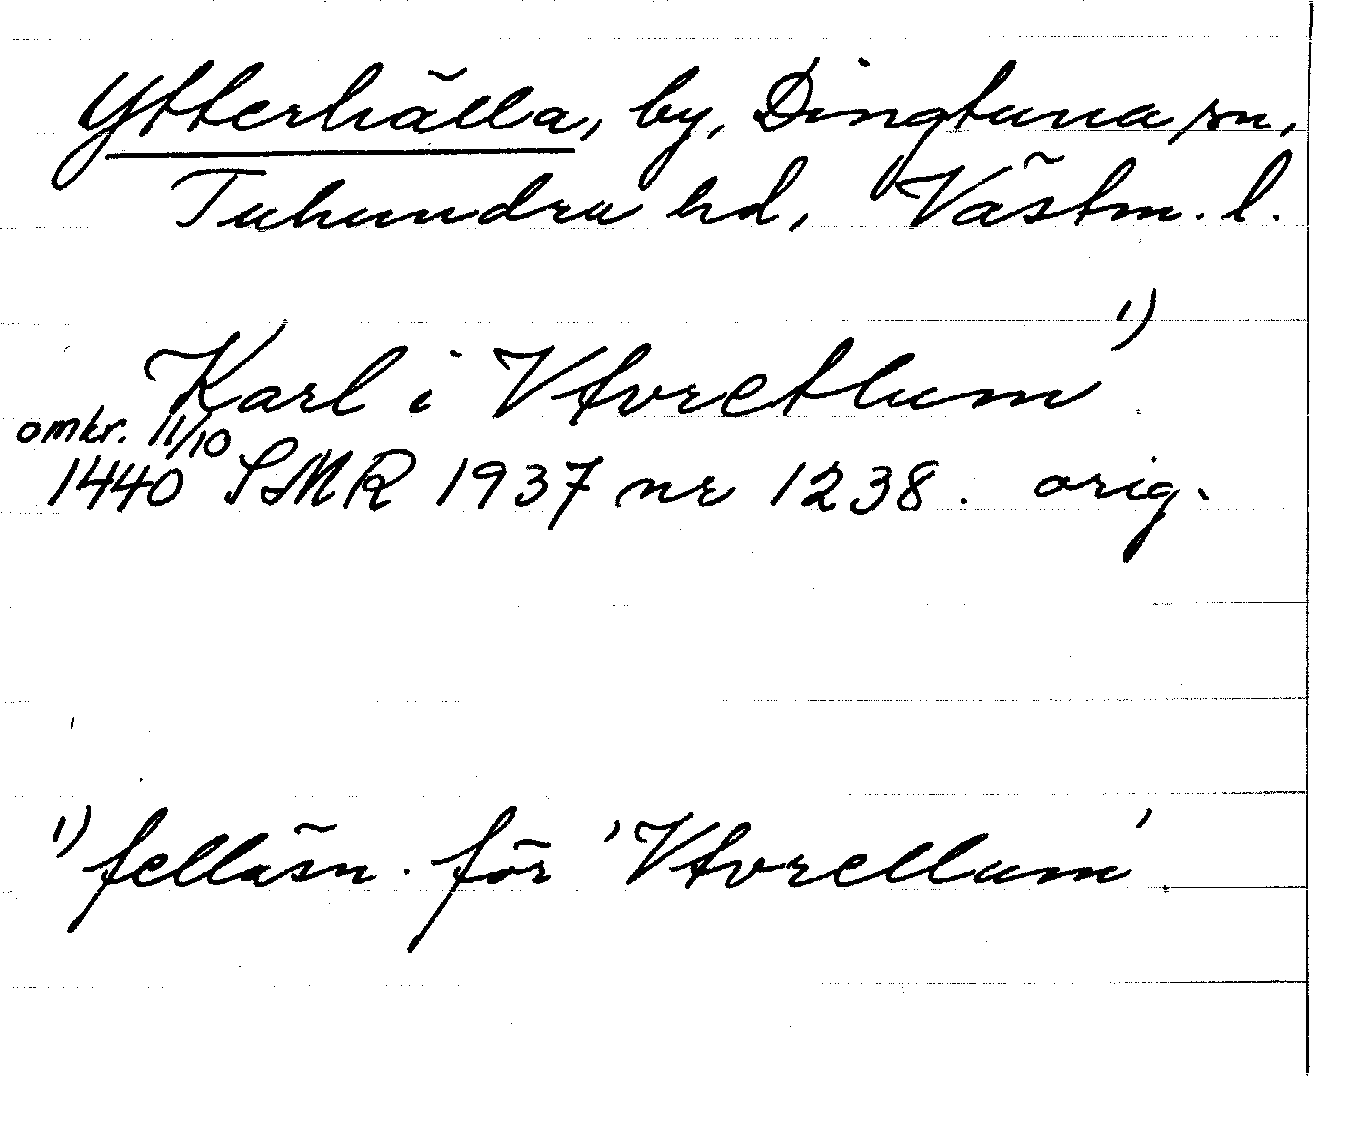 Ytterhälla, by, Dingtuna sn,
Tuhundra hd, Västm. l.
Karl i Vtvretlum 1)
omkr. 11/10
1440 SMR 1937 nr 1238. orig.
1) felläsn. för 'Vtvrellum'.